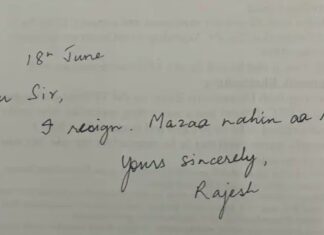 18th June
Sir,
I resign. Mazaa nahin aa
Yours sincerely,
Rajesh